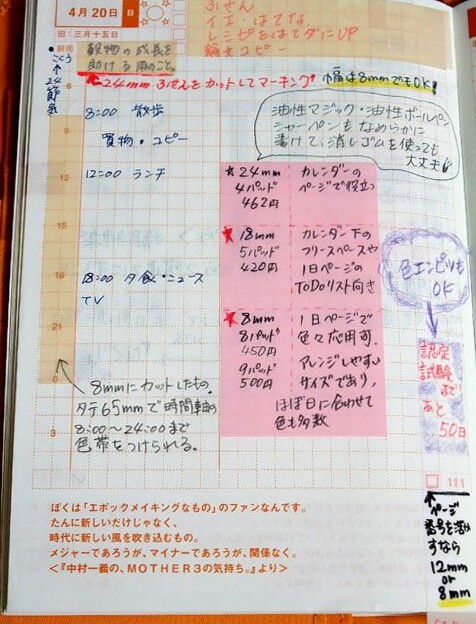 4月20日 日
旧:三月十五日
ふせん
イエ・はてな
レシピをはてダにUP
論文コピー
穀雨
こくう
↑
24節気
穀物の成長を
助ける雨のこと。
24mmふせんをカットしてマーキング!
幅は8mmでもOK!
6
8:00 散歩
買物・コピー
油性マジック・油性ボールペン
シャーペンもなめらかに
書けて、消しゴムを使っても
大丈夫
12
12:00 ランチ
★24mm
4パッド
462円
カレンダーの
ページで役立つ
15
★18mm
5パッド
420円
カレンダー下の
フリースペースや
1日ページの
ToDoリスト向き
色エンピツも
OK
18
18:00 夕飯・ニュース
TV
21
★8mm
8パッド
450円
9パッド
500円
1日ページで
色々応用可。
アレンジしやすい
サイズであり、
ほぼ日に合わせて
色も多数
認定
試験
まで
あと
50日
0
8mmにカットしたもの。
タテ65mmで時間軸の
8:00〜24:00まで
色帯をつけられる。
3
111
ページ
番号を活か
すなら
12mm
or
8mm
ぼくは「エポックメイキングなもの」のファンなんです。
たんに新しいだけじゃなく、
時代に新しい風を吹き込むもの。
メジャーであろうが、マイナーであろうが、関係なく。
<『中村一義の、MOTHER3の気持ち。』より>